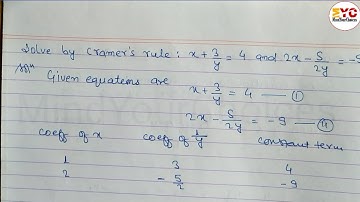 MYC
Solve by cramer's rule : x + 3/y = 4 and 2x - 5/2y = -9
Solⁿ Given equations are
x + 3/y = 4 —— (I)
2x - 5/2y = -9 —— (II)
coeff of x coeff of 1/y constant term
1 3 4
2 - 5/2 -9